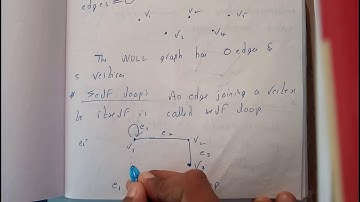 edges = 0
V1 V2 V5
V3 V4
The NULL graph has 0 edges &
5 vertices
* Self loop: An edge joining a vertex
to itself is called self loop
e1
e1 e2 V2
V1 e3
V3
e1